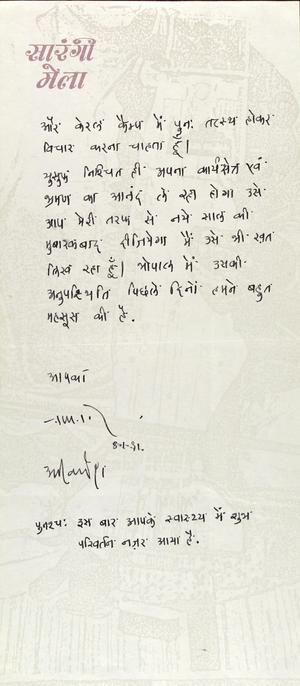 सारंगी
मेला
और केरल कैम्प में पुनः तटस्थ होकर
विचार करना चाहता हूँ।
युसुफ निश्चित ही अपना कार्यक्षेत्र एवं
भ्रमण का आनंद ले रहा होगा उसे
आप मेरी तरफ से नये साल की
मुबारकबाद दीजियेगा मैं उसे भी खत
लिख रहा हूँ। भोपाल में उसकी
अनुपस्थिति पिछले दिनों हमने बहुत
महसूस की है.
आपका
8-1-91.
पुनश्च: इस बार आपके स्वास्थ्य में शुभ
परिवर्तन नज़र आया है.